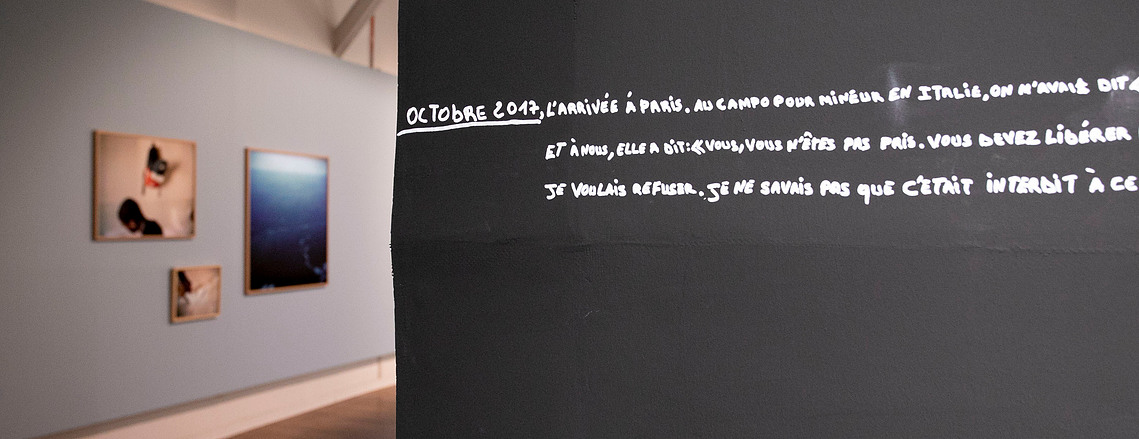 OCTOBRE 2017, L'ARRIVÉE À PARIS. AU CAMPO POUR MINEUR EN ITALIE, ON M'AVAIT DIT
ET À NOUS, ELLE A DIT: «VOUS, VOUS N'ÊTES PAS PRIS. VOUS DEVEZ LIBÉRER
JE VOULAIS REFUSER. JE NE SAVAIS PAS QUE C'ÉTAIT INTERDIT À CE